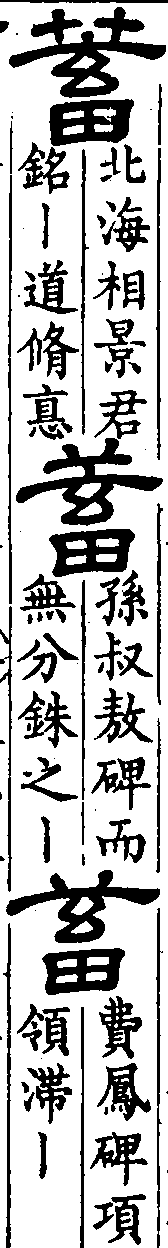 蓄
北海相景君
銘｜道脩悳
蓄
孫叔敖碑而
無分銖之｜
蓄
費鳳碑項
領滯｜